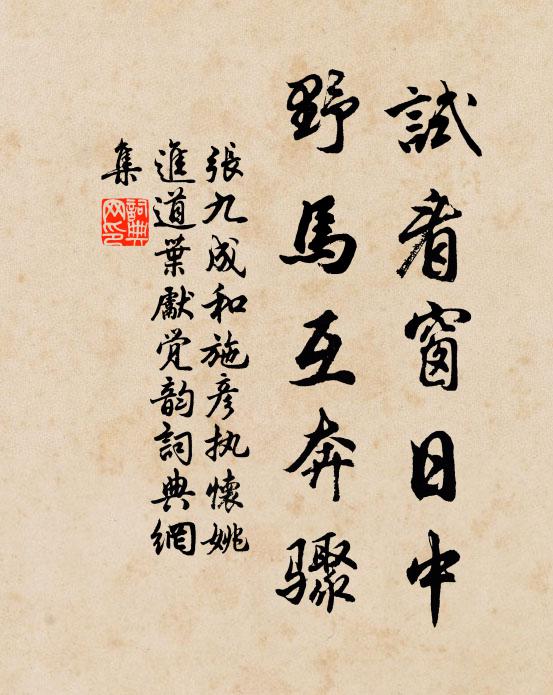 試看窗日中
野馬互奔驟
張九成和施彦执懷姚
進道葉獻党韵詞典網
集
詞典网印